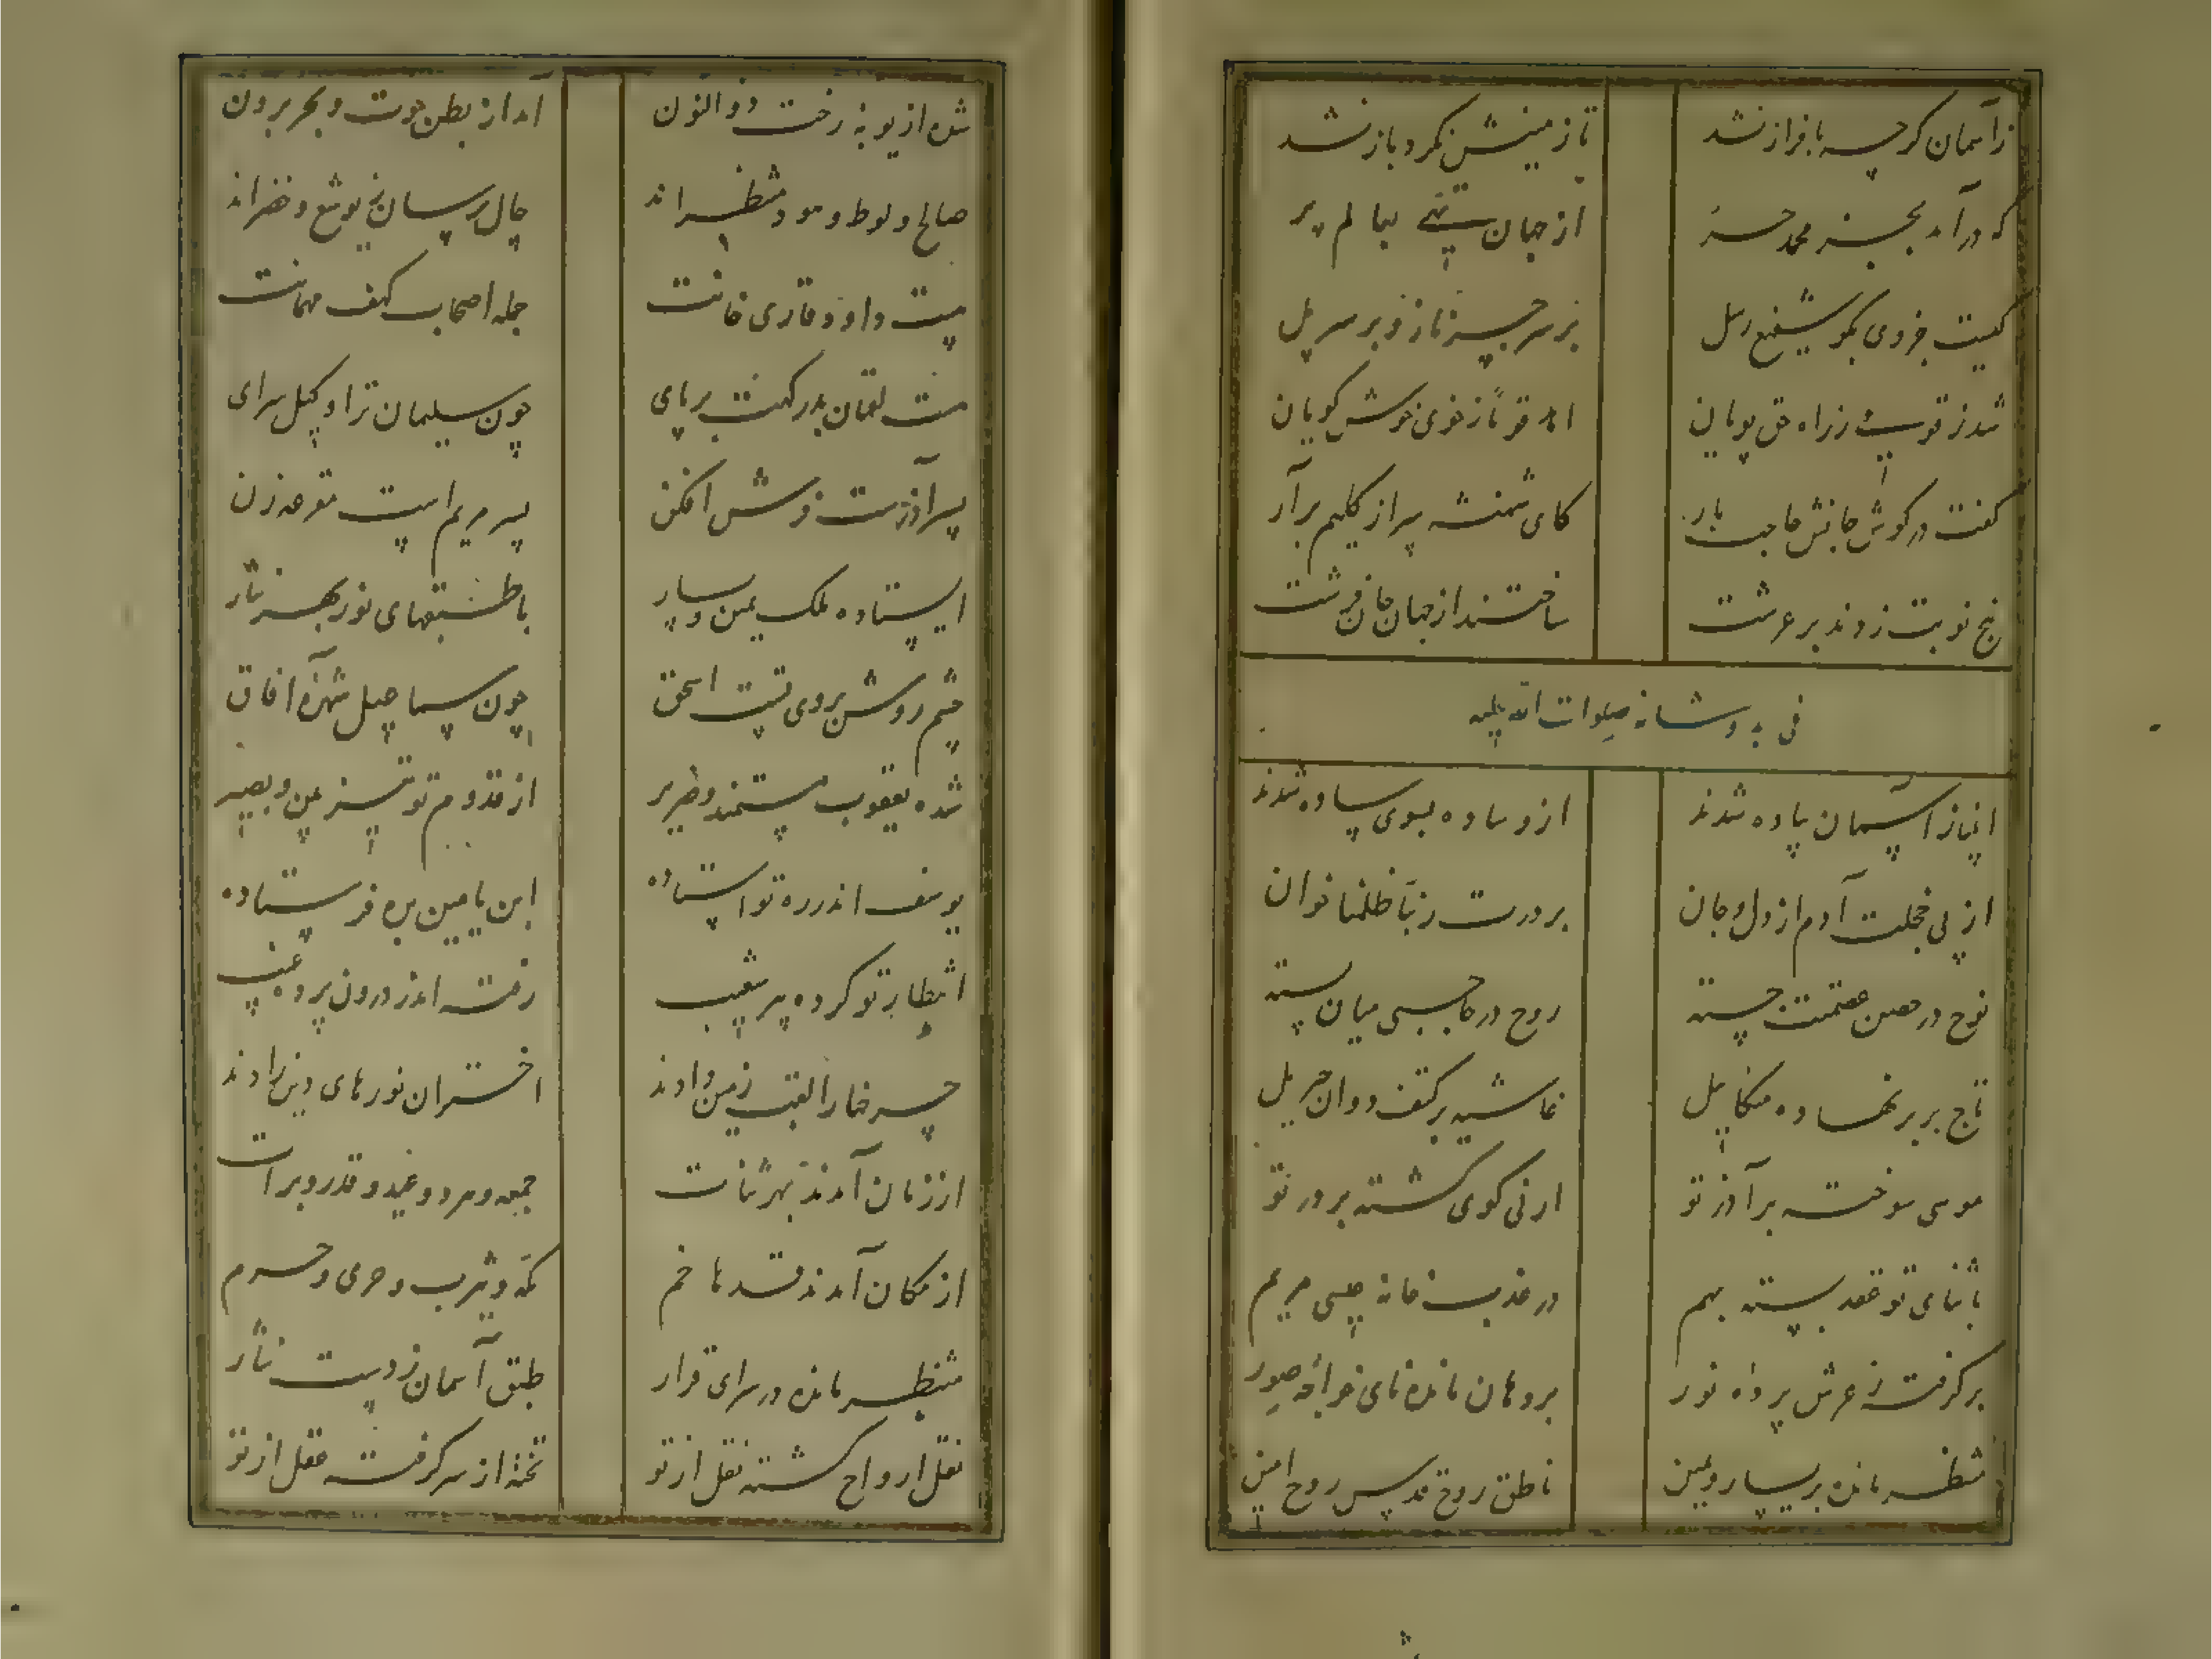 زآسمان گرچه با فراز نشد تا زمینش نکرد باز نشد
که درآمد بجز محمد حر از جهان تهی بعالم پر
کیست جز وی بگو شفیع رسل بر سر چیز ناز و بر سر پل
شد ز قوسین ز راه حق پویان اهد قومی ز خوی خوش کویان
گفت در گوش جانش حاجب بار کای شهنشه سر از گلیم برآر
پنج نوبت زدند بر عرشت ساختند از جهان جان فرشت
فی بدو شانه صلوات الله علیه
انبیا ز آسمان پیاده شدند از وساده بسوی ساده شدند
از پی خجلت آدم از دل و جان بر درت ربنا ظلمنا خوان
نوح در حصن عصمتت جسته روح در حاجبی میان بسته
تاج بر سر نهاده میکائیل غاشیه بر کتف دوان جبریل
موسی سوخته بر آذر تو ارنی گوی گشته بر در تو
با ثنای تو عقد بسته بهم در عذب خانه عیسی مریم
برگرفته ز عرش پرده نور بر دهان مانده نای خواجه صور
منتظر مانده بر یسار و یمین ناطق روح قدس روح امین
شده از بویه رخت ذوالنون آمد از بطن حوت و بحر برون
صالح و لوط و هود منتظر اند حال پرسان ز یوشع و خضر اند
پیشت داود قاری خانت جمله اصحاب کهف مهمانت
هست لقمان بدرگهت بر پای چون سلیمان ترا وکیل سرای
پسر آزرست فرش افکن پسر مریم است مقرعه زن
ایستاده ملک یمین و یسار با طبقهای نور بهر نثار
چشم روشن بروی تست اسحق چون سماعیل شهره آفاق
شده یعقوب مستمند و ضریر از قدوم تو تیز عین و بصیر
یوسف اندر ره تو استاده ابن یامین بره فرستاده
انتظار تو کرده پیر شعیب رفته اندر درون پرده غیب
چرخها را لقب زمین دادند اختران نورهای دین دادند
از زمان آمدند بهر ثنات جمعه و هر دو عید و قدر و برات
از مکان آمدند قدها خم مکه و یثرب و حری و حرم
منتظر مانده در سرای قرار طبق آسمان ز دست نثار
نقل ارواح گشته نقل از تو تخته از سر گرفته عقل از تو